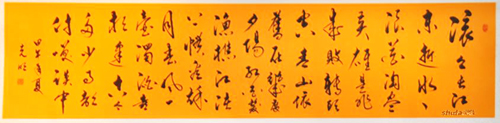 滚々长江
东逝水
浪花淘尽
英雄是非
成败转头
空青山依
旧在几度
夕阳红白发
渔樵江渚
上惯看秋
月春风一
壶浊酒喜
相逢古今
多少事都
付笑谈中